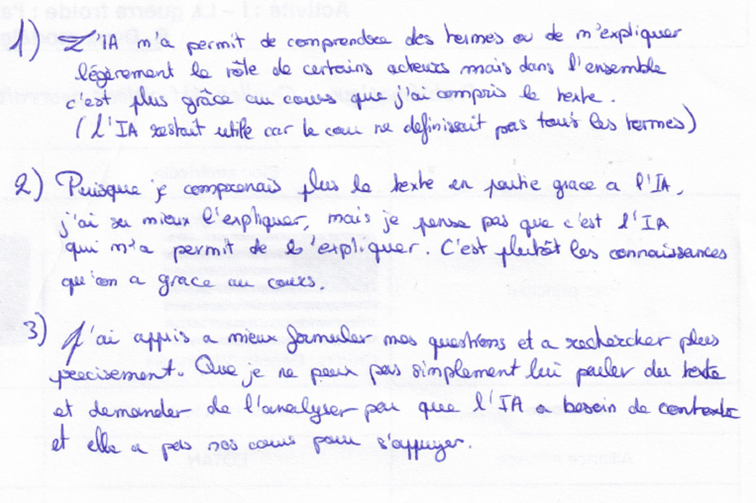 1) L'IA m'a permit de comprendre des termes ou de m'expliquer
légèrement le rôle de certains acteurs mais dans l'ensemble
c'est plus grâce au cours que j'ai compris le texte.
(L'IA restait utile car le cour ne definissait pas tous les termes)
2) Puisque je comprenais plus le texte en partie grace a l'IA,
j'ai su mieux l'expliquer, mais je pense pas que c'est l'IA
qui m'a permit de l'expliquer. C'est plutôt les connaissances
qu'on a grace au cours.
3) J'ai appris a mieux formuler mes questions et a rechercher plus
precisement. Que je ne peux pas simplement lui parler du texte
et demander de l'analyser que l'IA a besoin de contexte
et elle a pas nos cours pour s'appuyer.